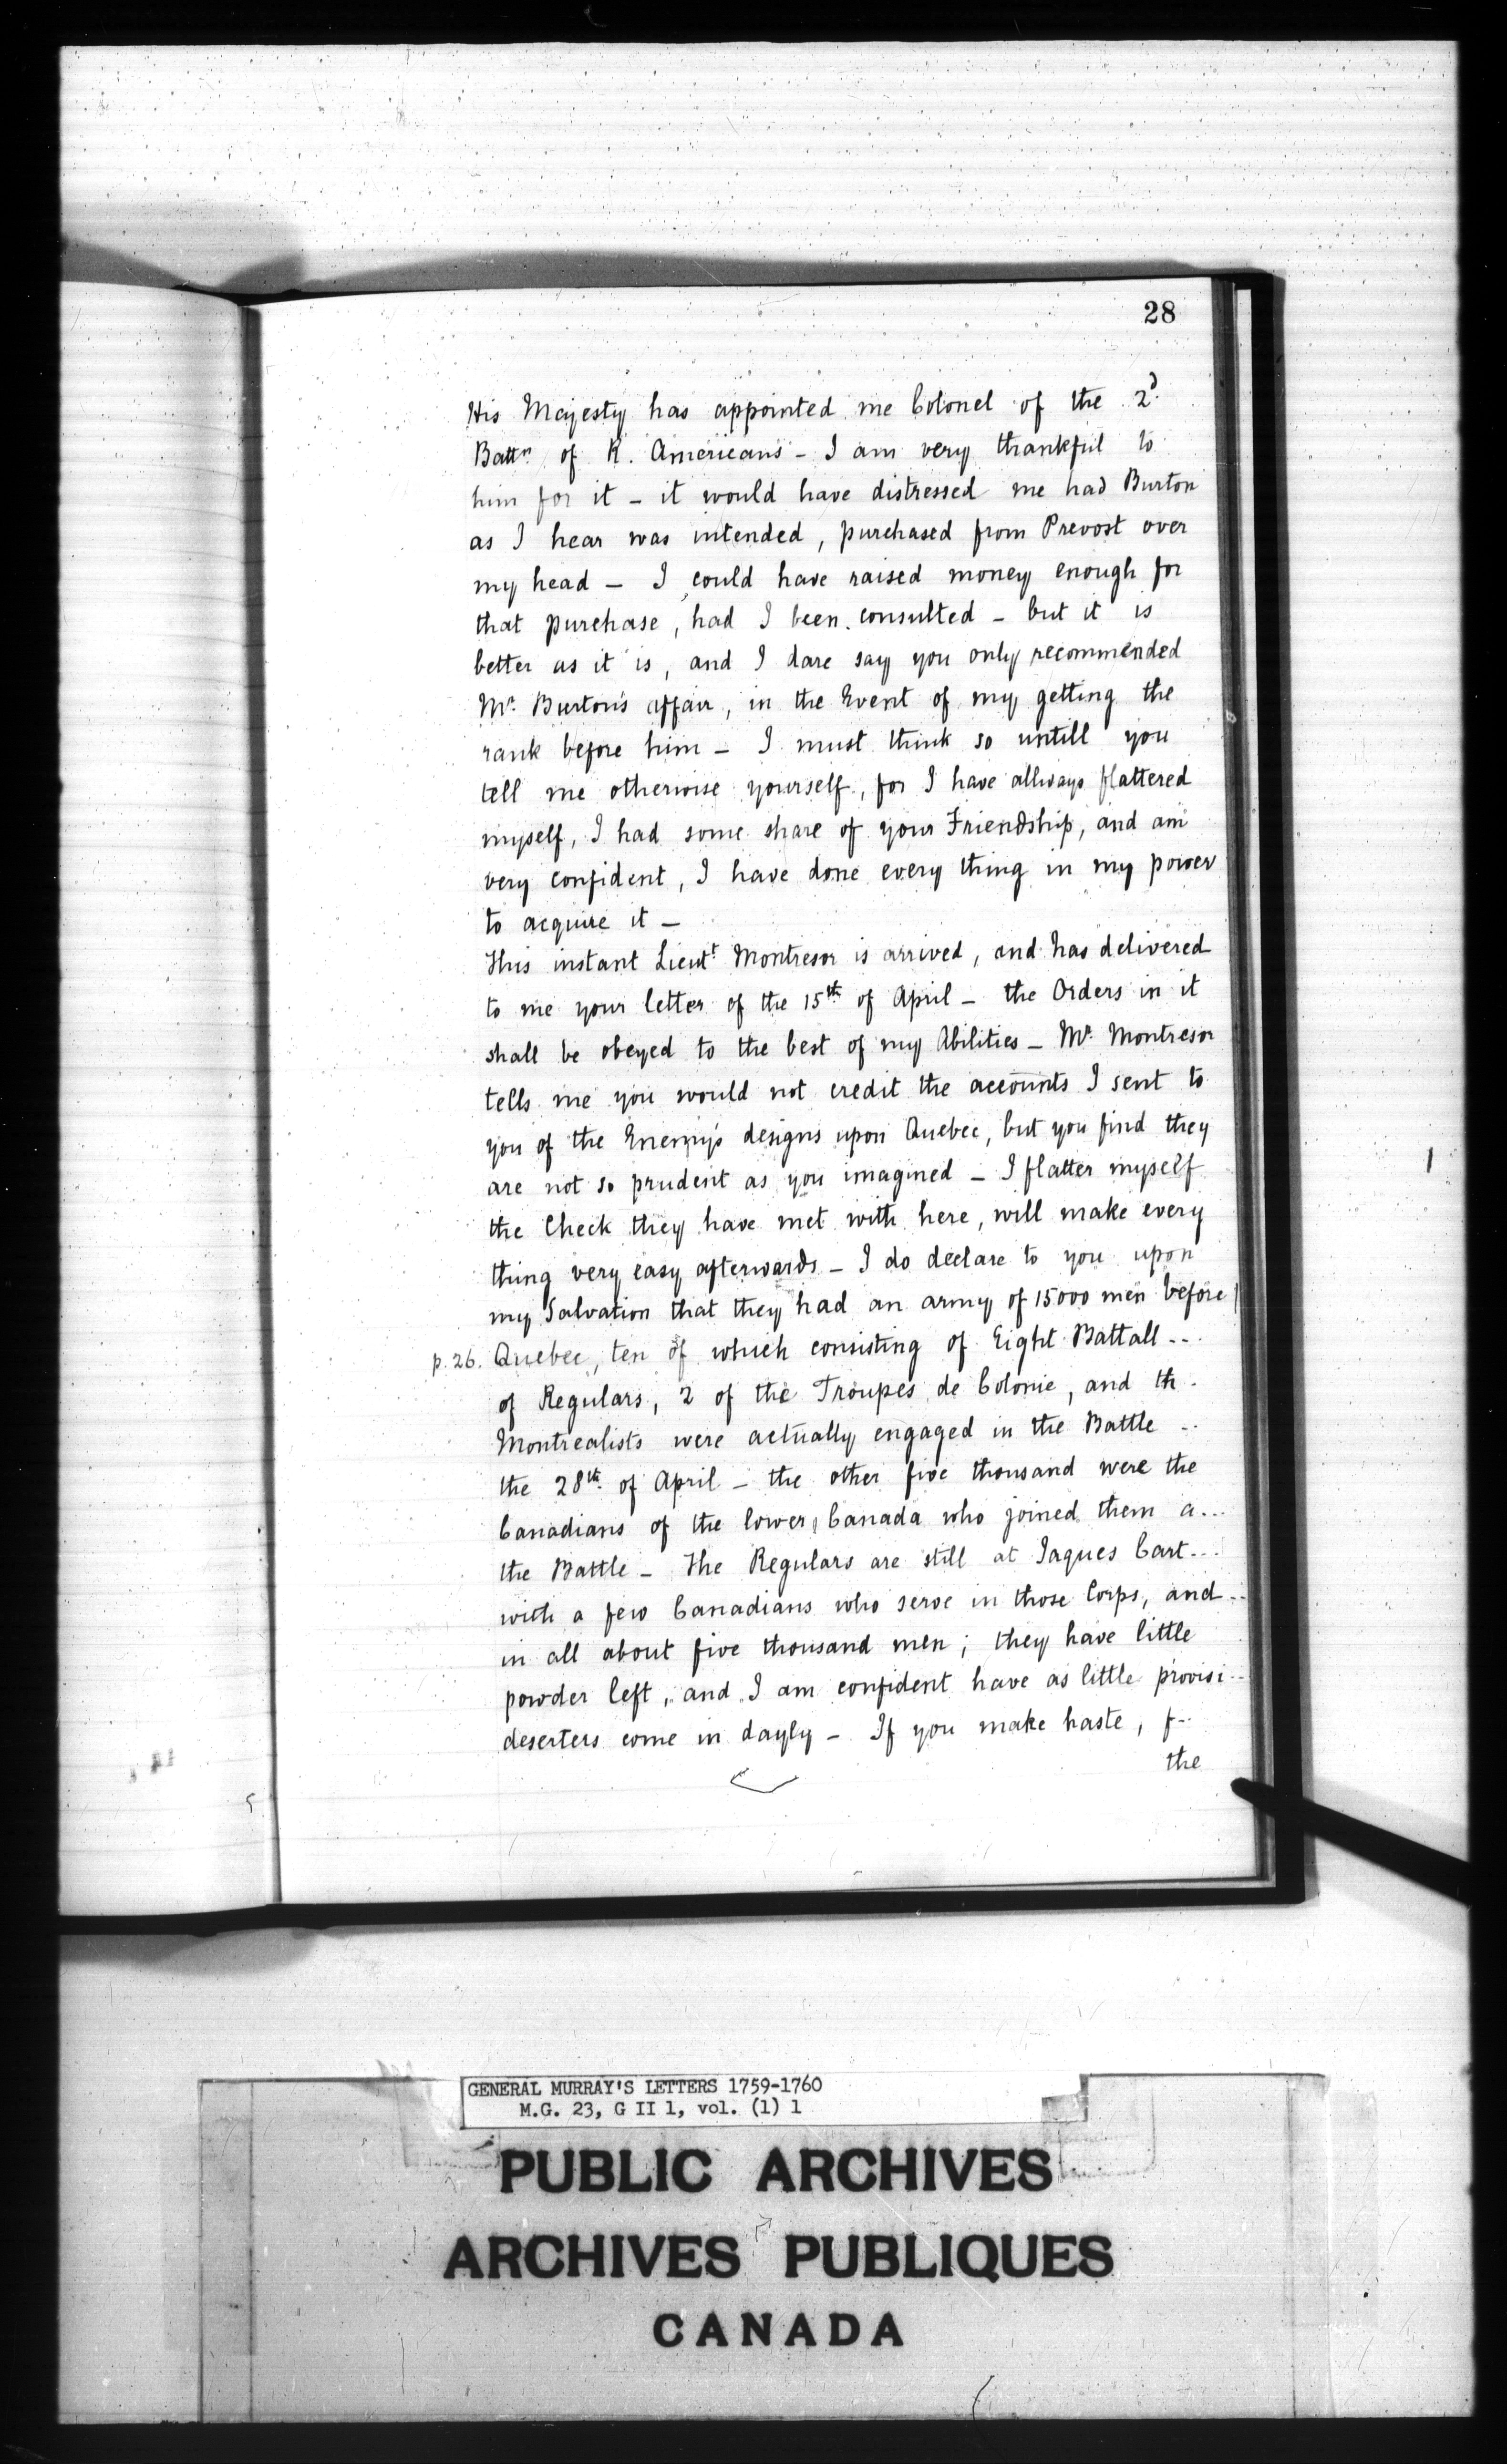 28
His Majesty has appointed me Colonel of the 2d.
Battn. of R. Americans - I am very thankful to
him for it - it would have distressed me had Burton
as I hear was intended, purchased from Prevost over
my head - I could have raised money enough for
that purchase, had I been consulted - but it is
better as it is, and I dare say you only recommended
Mr. Burton's affair, in the Event of my getting the
rank before him - I must think so untill you
tell me otherwise yourself, for I have allways flattered
myself, I had some share of your Friendship, and am
very confident, I have done every thing in my power
to acquire it -
This instant Lieutt. Montresor is arrived, and has delivered
to me your letter of the 15th. of April - the Orders in it
shall be obeyed to the best of my Abilities - Mr. Montresor
tells me you would not credit the accounts I sent to
you of the Enemy's designs upon Quebec, but you find they
are not so prudent as you imagined - I flatter myself
the Check they have met with here, will make every
thing very easy afterwards - I do declare to you upon
my Salvation that they had an army of 15000 men before
p. 26. Quebec, ten of which consisting of Eight Battall...
of Regulars, 2 of the Troupes de Colonie, and th..
Montrealists were actually engaged in the Battle ..
the 28th. of April - the other five thousand were the
Canadians of the lower Canada who joined them a...
the Battle - The Regulars are still at Jaques Cart...
with a few Canadians who serve in those Corps, and ..
in all about five thousand men; they have little
powder left, and I am confident have as little provisi...
deserters come in dayly - If you make haste, f...
the
GENERAL MURRAY'S LETTERS 1759-1760
M.G. 23, G II 1, vol. (1) 1
PUBLIC ARCHIVES
ARCHIVES PUBLIQUES
CANADA